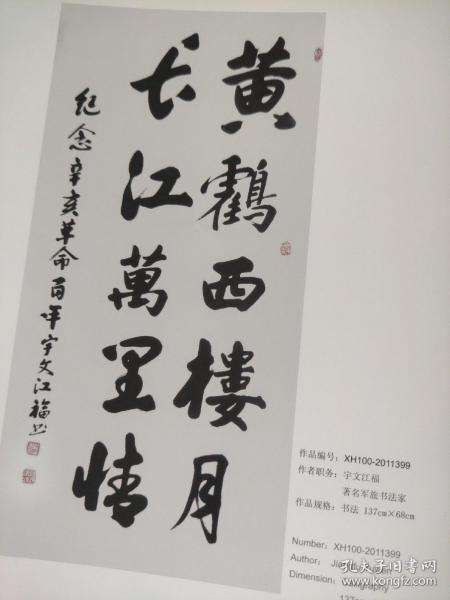 黄鹤西樓月
长江萬里情
纪念辛亥革命百年宇文江福书
作品编号：XH100-2011399
作者职务：宇文江福
著名军旅书法家
作品规格：书法 137cm×68cm
Number: XH100-2011399
Author:
Dimension:
137cm
孔夫子旧书网